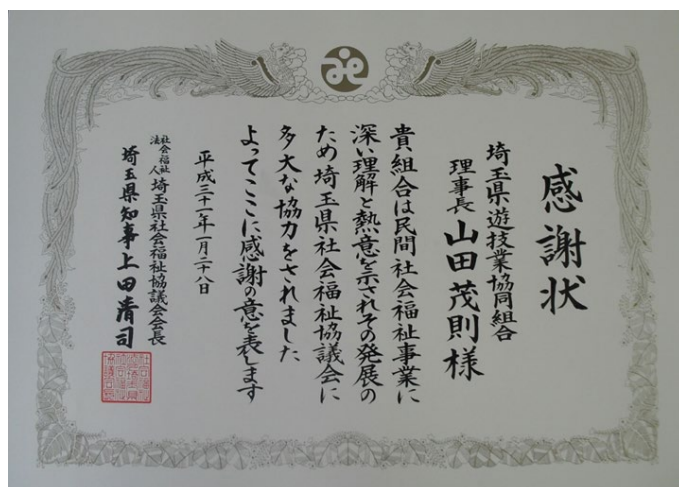 感謝状
埼玉県遊技業協同組合
理事長 山田茂則様
貴組合は民間社会福祉事業に
深い理解と熱意を示されその発展の
ため埼玉県社会福祉協議会に
多大な協力をされました
よってここに感謝の意を表します
平成三十一年一月二十八日
社会福祉法人 埼玉県社会福祉協議会会長
埼玉県知事 上田清司